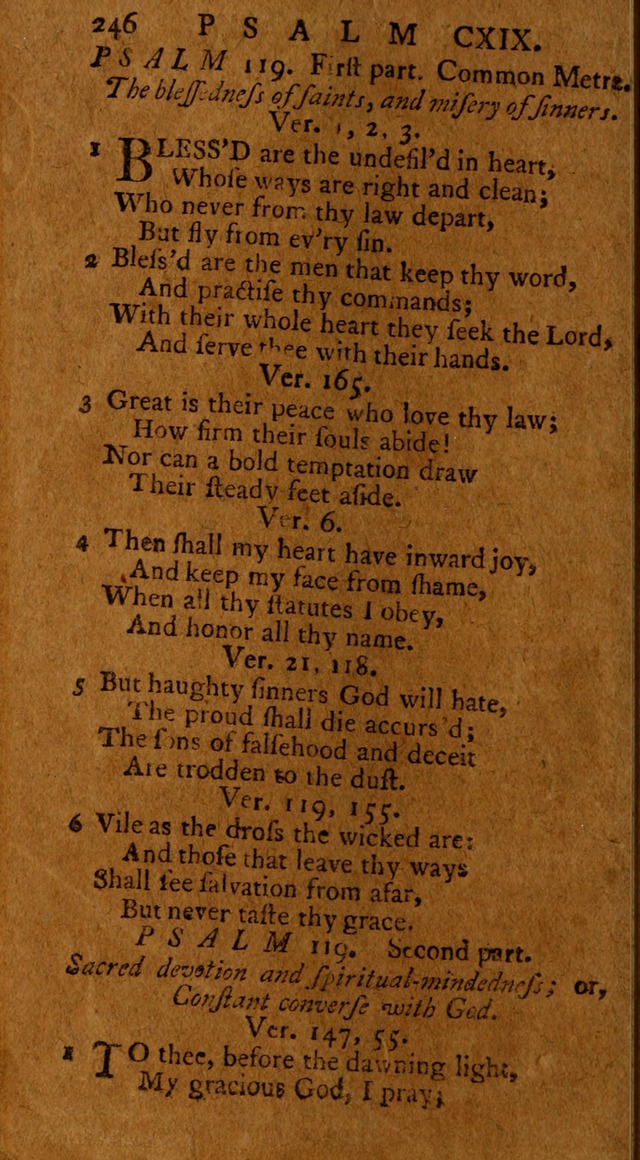 246 PSALM CXIX.
PSALM 119. First part. Common Metre.
The bleſſedneſs of ſaints, and miſery of ſinners.
Ver. 1, 2, 3.
1 BLESS'D are the undefil'd in heart,
Whoſe ways are right and clean;
Who never from thy law depart,
But fly from ev'ry ſin.
2 Bleſs'd are the men that keep thy word,
And practiſe thy commands;
With their whole heart they ſeek the Lord,
And ſerve thee with their hands.
Ver. 165.
3 Great is their peace who love thy law;
How firm their ſouls abide!
Nor can a bold temptation draw
Their ſteady feet aſide.
Ver. 6.
4 Then ſhall my heart have inward joy,
And keep my face from ſhame,
When all thy ſtatutes I obey,
And honor all thy name.
Ver. 21, 118.
5 But haughty ſinners God will hate,
The proud ſhall die accurs'd;
The ſons of falſehood and deceit
Are trodden to the duſt.
Ver. 119, 155.
6 Vile as the droſs the wicked are:
And thoſe that leave thy ways
Shall ſee ſalvation from afar,
But never taſte thy grace.
PSALM 119. Second part.
Sacred devotion and ſpiritual-mindedneſs; or,
Conſtant converſe with God.
Ver. 147, 55.
1 TO thee, before the dawning light,
My gracious God, I pray;